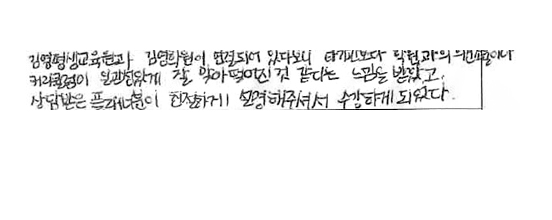 김영평생교육원과 김영학원이 연결되어 있다보니 타기관보다 학원과의 의사소통이나
커리큘럼이 일관성있게 잘 맞아떨어진 것 같다는 느낌을 받았고,
상담받은 플래너분이 친절하게 설명해주셔서 수강하게 되었다.